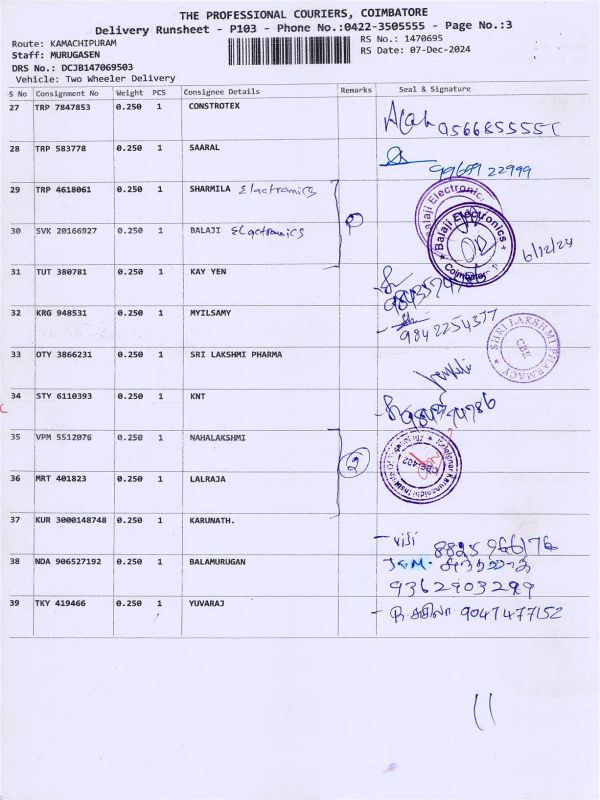 THE PROFESSIONAL COURIERS, COIMBATORE
Delivery Runsheet - P103 - Phone No.:0422-3505555 - Page No.:3
Route: KAMACHIPURAM RS No.: 1470695
Staff: MURUGASEN RS Date: 07-Dec-2024
DRS No.: DCJB147069503
Vehicle: Two Wheeler Delivery
S No Consignment No Weight PCS Consignee Details Remarks Seal & Signature
27 TRP 7847853 0.250 1 CONSTROTEX
28 TRP 583778 0.250 1 SAARAL 99699 22999
29 TRP 4618061 0.250 1 SHARMILA Electronics
30 SVK 20166927 0.250 1 BALAJI Electronics Balaji Electronics Coimbatore 6/12/24
31 TUT 380781 0.250 1 KAY YEN
32 KRG 948531 0.250 1 MYILSAMY 9842254377
33 OTY 3866231 0.250 1 SRI LAKSHMI PHARMA SHRI LAKSHMI PHARMACY CBE
34 STY 6110393 0.250 1 KNT
35 VPM 5512076 0.250 1 NAHALAKSHMI 2
36 MRT 401823 0.250 1 LALRAJA
37 KUR 3000148748 0.250 1 KARUNATH. 8825966176
38 NDA 906527192 0.250 1 BALAMURUGAN 9362903299
39 TKY 419466 0.250 1 YUVARAJ 9047477152